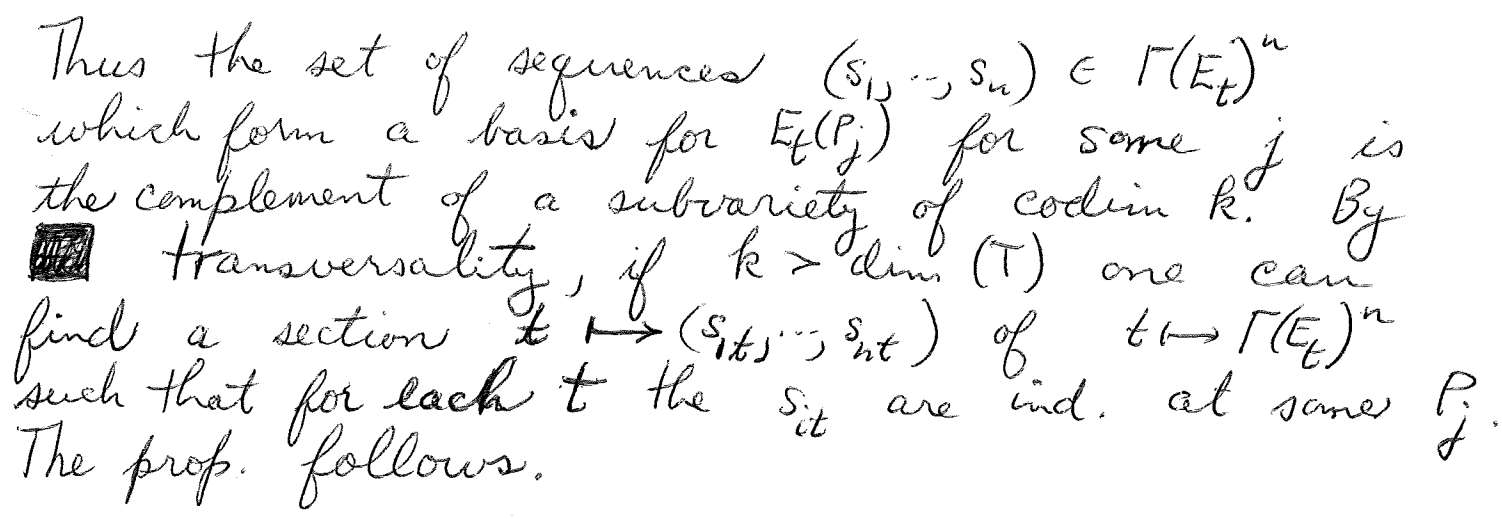 Thus the set of sequences (s₁, .., sₙ) ∈ Γ(E_t)ⁿ
which form a basis for E_t(P_j) for some j is
the complement of a subvariety of codim k. By
transversality, if k > dim (T) one can
find a section t ↦ (s₁t, .., sₙt) of t ↦ Γ(E_t)ⁿ
such that for each t the s_it are ind. at some P_j.
The prop. follows.